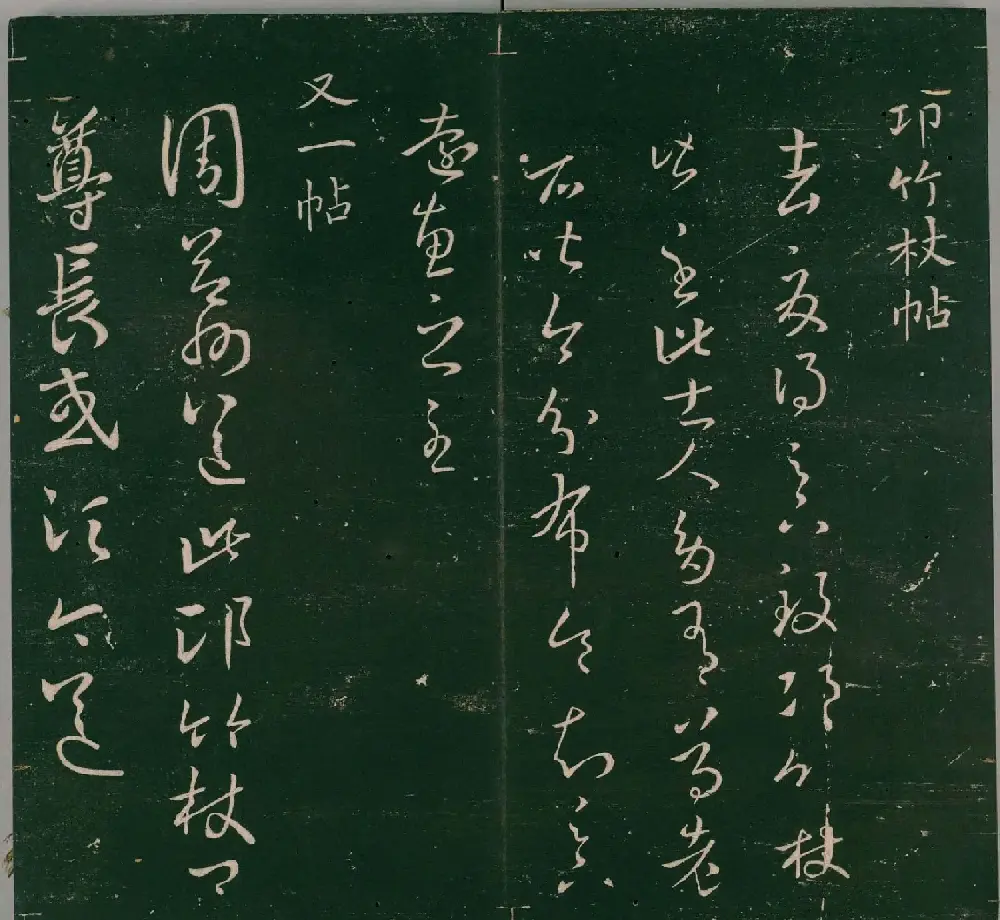 邛竹杖帖
去夏得足下致邛竹杖
皆至此士人多有尊老
者皆即分布令知足下
遠惠之至
又一帖
周益州送此邛竹杖卿
尊長或須今送